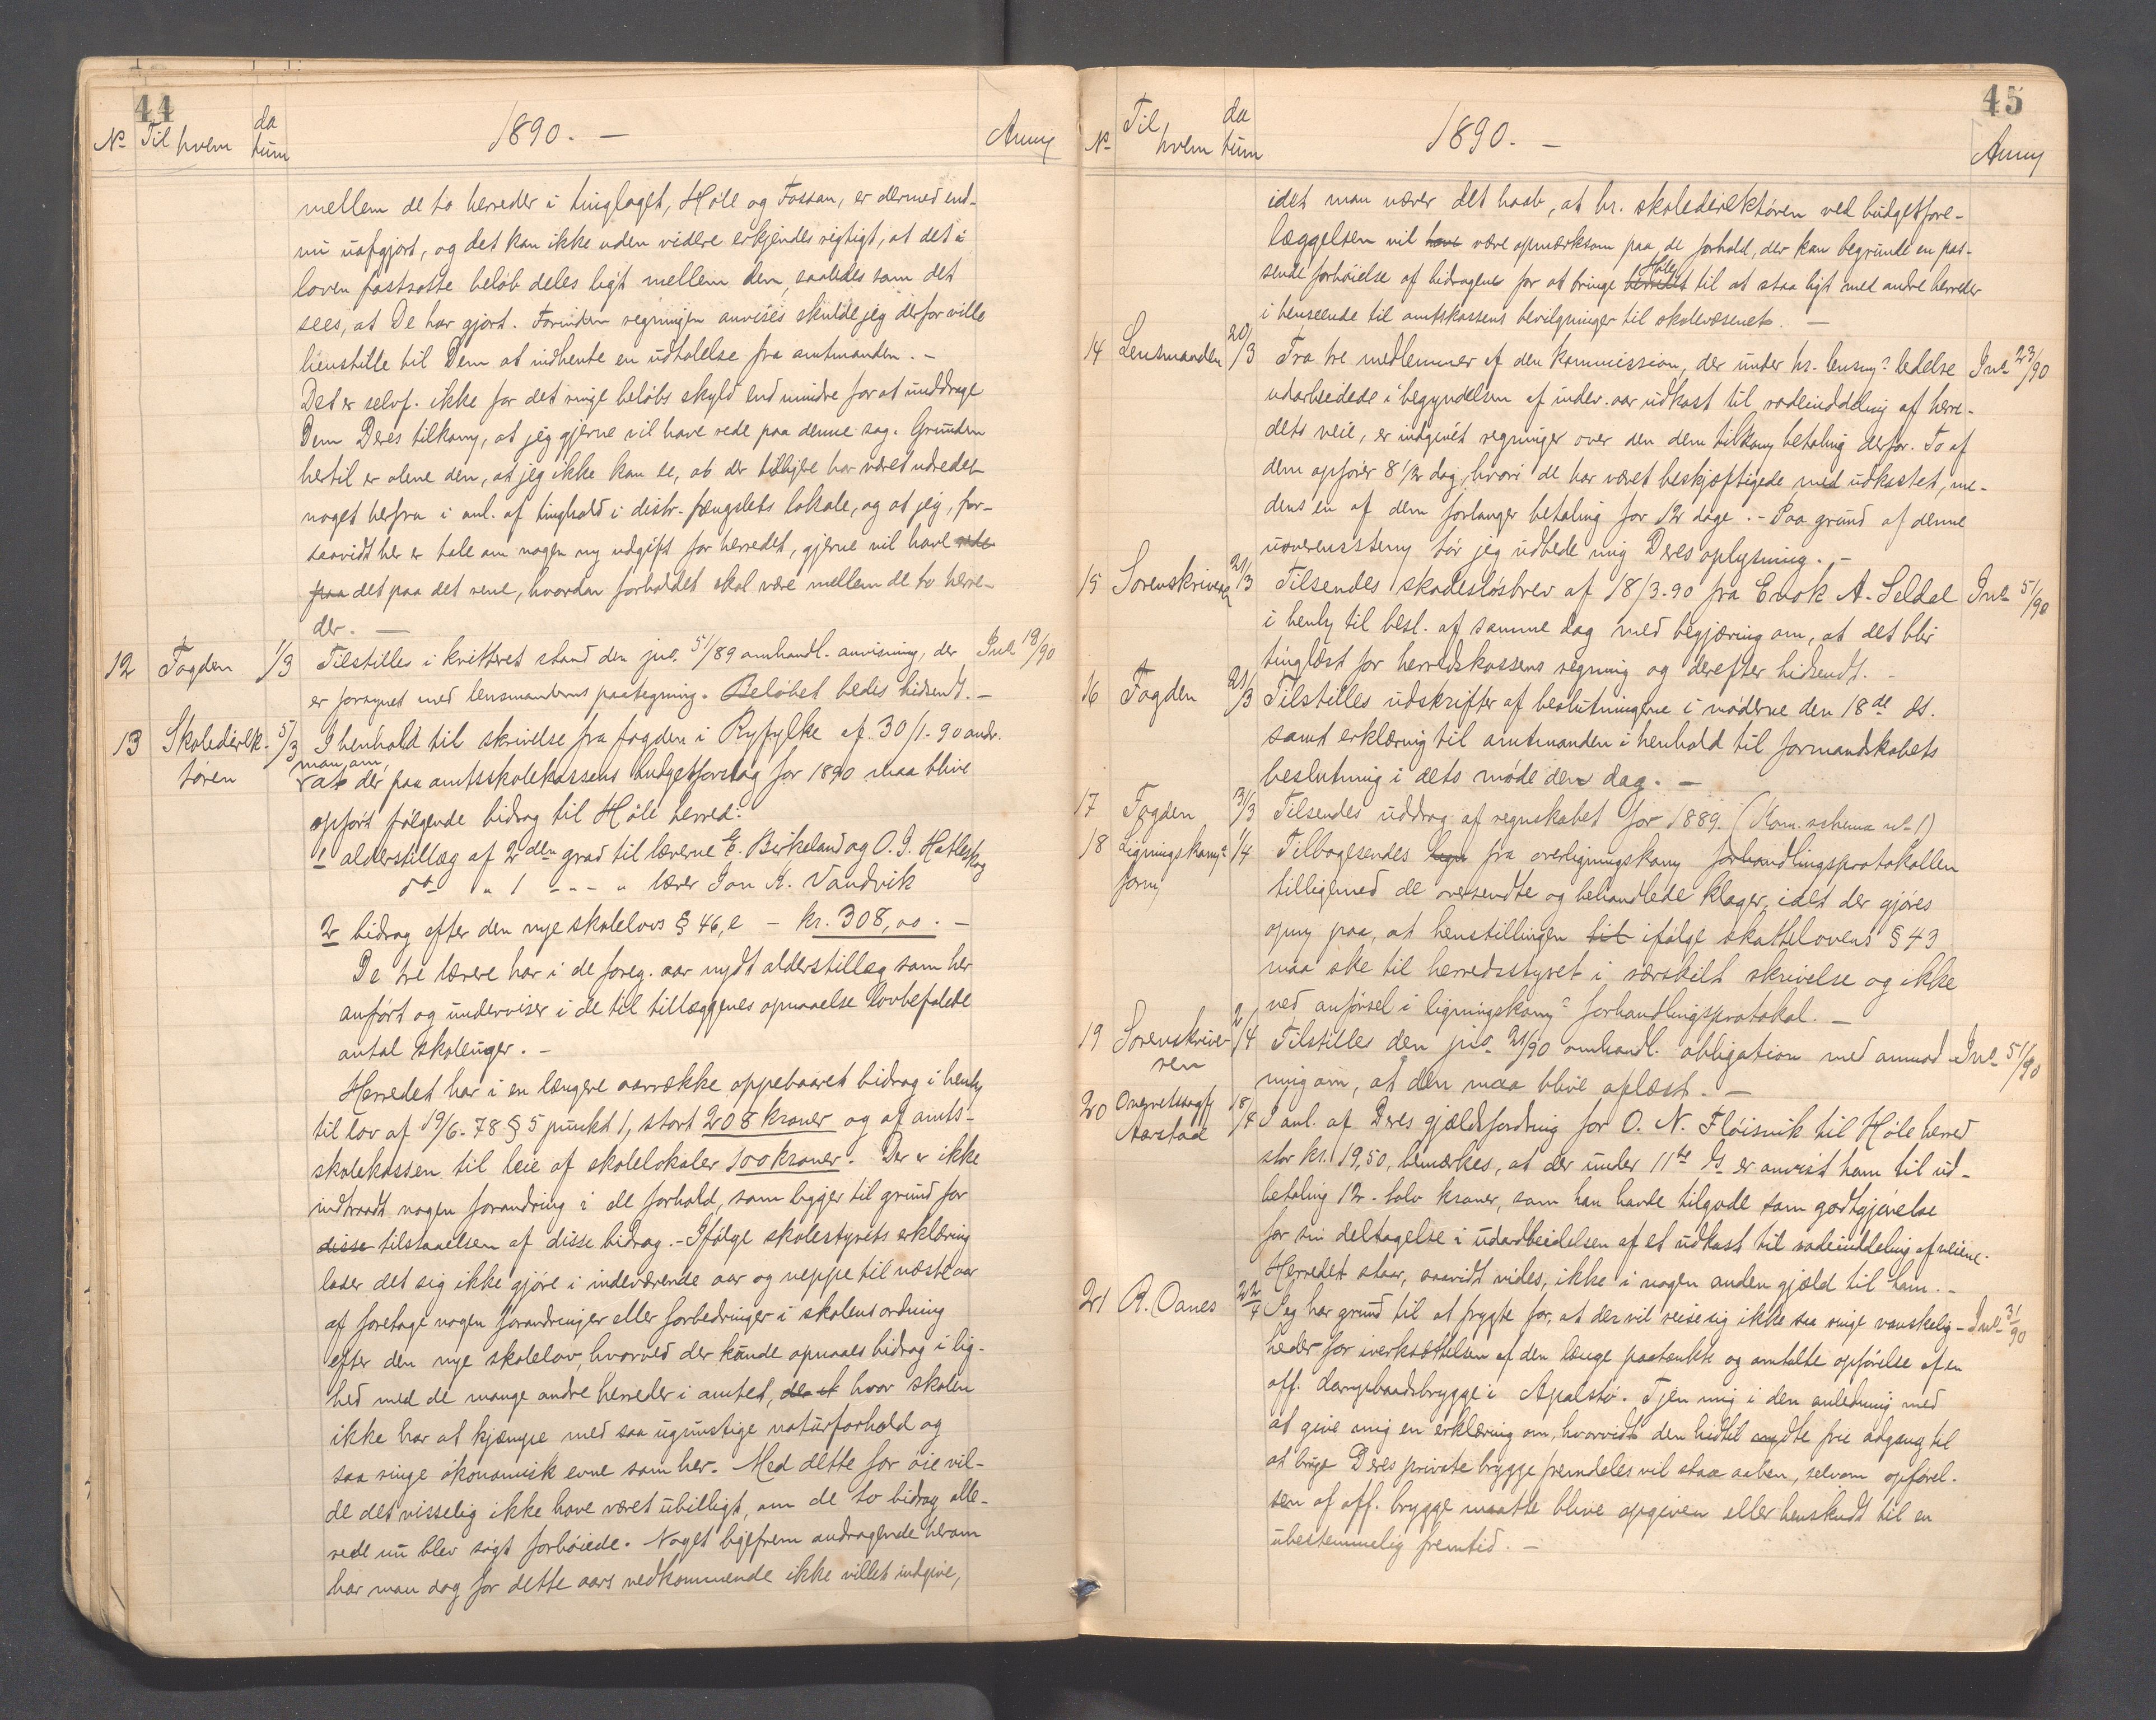 44
No Til hvem da tum 1890. — Anm
mellem de to herreder i tinglaget, Höle og Fossan, er dermed end-
nu uafgjort, og det kan ikke uden videre erkjendes rigtigt, at det i
loven fastsatte beløb deles ligt mellem dem, saaledes som det
sees, at De har gjort. Forinden regningen anvises skulde jeg derfor ville
henstille til Dem at indhente en udtalelse fra amtmanden. -
Det er selvf. ikke for det ringe beløbs skyld end mindre for at unddrage
Dem Deres tilkomm, at jeg gjerne vil have rede paa denne sag. Grunden
hertil er alene den, at jeg ikke kan se, at der tidligere har været udredet
noget herfra i anl. af tinghold i distr. fængslets lokale, og at jeg, for-
saavidt her er tale om nogen ny udgift for herredet, gjerne vil have rede
paa det paa det rene, hvordan forholdet skal være mellem de to herre-
der. —
12 Fogden 1/3 Tilstilles i kvittret stand den jno. 51/89 omhandl. anvisning, der Jno 19/90
er forsynet med lensmandens paategning. Beløbet bedes hidsendt. -
13 Skoledirek- 5/3 I henhold til skrivelse fra fogden i Ryfylke af 30/1-90 andr.
tøren man om,
at der paa amtsskolekassens budgetforslag for 1890 maa blive
opført følgende bidrag til Höle herred:
1 alderstillæg af 2den grad til lærerne E. Birkeland og O. J. Hatleskog
do " 1 - - - " lærer Jon K. Vandvik
2 bidrag efter den nye skolelovs § 46,e - kr. 308,00. -
De tre lærere har i de foreg. aar nydt alderstillæg som her
anført og underviser i de til tillæggenes opnaaelse lovbefalede
antal skoleuger. -
Herredet har i en længere aarrække oppebaaret bidrag i henh
til lov af 19/6-78 § 5 punkt 1, stort 208 kroner og af amts-
skolekassen til leie af skolelokaler 100 kroner. Der er ikke
indtraadt nogen forandring i de forhold, som ligger til grund for
disse tilstaaelsen af disse bidrag. - Ifølge skolestyrets erklæring
lader det sig ikke gjøre i indeværende aar og neppe til næste aar
at foretage nogen forandringer eller forbedringer i skolens ordning
efter den nye skolelov, hvorved der kunde opnaaes bidrag i lig-
hed med de mange andre herreder i amtet, hvor skolen
ikke har at kjæmpe med saa ugunstige naturforhold og
saa ringe økonomisk evne som her. Med dette for øie vil-
de det visselig ikke have været ubilligt, om de to bidrag alle-
rede nu blev søgt forhøiede. Noget ligefrem andragende herom
har man dog for dette aars vedkommende ikke villet indgive,
45
No Til hvem da tum 1890. — Anm
idet man nærer det haab, at hr. skoledirektøren ved budgetfore-
læggelsen vil have være opmærksom paa de forhold, der kan begrunde en pas-
sende forhøielse af bidragene for at bringe herredet Höle til at staa ligt med andre herreder
i henseende til amtskassens bevilgninger til skolevæsenet. —
14 Lensmanden 20/3 Fra tre medlemmer af den kommission, der under hr. lensm? ledelse Jno 23/90
udarbeidede i begyndelsen af indev. aar udkast til rodeinddeling af herre-
dets veie, er indgivet regninger over den dem tilkomm betaling derfor. To af
dem opfører 8 1/2 dag, hvori de har været beskjæftigede med udkastet, me-
dens en af dem forlanger betaling for 12 dage. - Paa grund af denne
uoverensstem tør jeg udbede mig Deres oplysning. -
15 Sorenskriveren 21/3 Tilsendes skadesløsbrev af 18/3-90 fra Enok A. Seldal Jno 51/90
i henh til besl. af samme dag med begjæring om, at det blir
tinglæst for herredskassens regning og derefter hidsendt. -
16 Fogden 21/3 Tilstilles udskrifter af beslutningerne i møderne den 18de ds.
samt erklæring til amtmanden i henhold til formandskabets
beslutning i dets møde den dag. —
17 Fogden 31/3 Tilsendes uddrag af regnskabet for 1889. (Kom. schema no 1)
18 Ligningskomm? 1/4 Tilbagesendes fra overligningskomm forhandlingsprotokollen
form
tilligemed de oversendte og behandlede klager, idet der gjøres
opm paa, at henstillingen til ifølge skattelovens § 43
maa ske til herredsstyret i særskilt skrivelse og ikke
ved anførsel i ligningskomm? forhandlingsprotokol. —
19 Sorenskrive- 2/4 Tilstilles den jno. 21/90 omhandl. obligation med anmod- Jno 51/90
ren
ning om, at den maa blive aflæst. -
20 Overretssagf 18/4 I anl. af Deres gjældsfordring for O. N. Fløisvik til Höle herred
Aarstad
stor kr. 19,50, bemærkes, at der under 11te ds er anvist ham til ud-
betaling 12 - tolv kroner, som han havde tilgode som godtgjørelse
for sin deltagelse i udarbeidelsen af et udkast til rodeinddeling af veiene.
Herredet staar, saavidt vides, ikke i nogen anden gjæld til ham. -
21 R. Oanes 22/4 Jeg har grund til at frygte for, at der vil reise sig ikke saa ringe vanskelig- Jno 31/90
heder for iverksættelsen af den længe paatænkte og omtalte opførelse af en
off. dampbaadsbrygge i Apalstø. Tjen mig i den anledning med
at give mig en erklæring om, hvorvidt den hidtil nydte frie adgang til
at bruge Deres private brygge fremdeles vil staa aaben, selvom opførel-
sen af off. brygge maatte blive opgiven eller henskudt til en
ubestemmelig fremtid. —